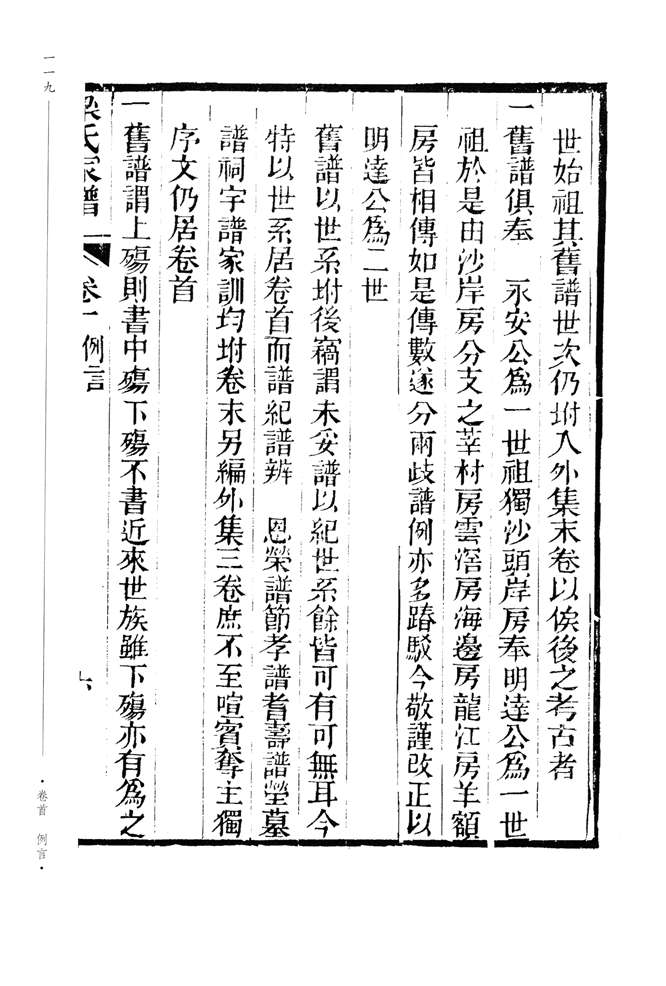 世始祖其舊譜世次仍坿入外集末卷以俟後之考古者
一舊譜俱奉　永安公爲一世祖獨沙頭岸房奉明達公爲一世
祖於是由沙岸房分支之莘村房雲滘房海邊房龍江房羊額
房皆相傳如是傳數遂分兩歧譜例亦多踳駁今敬謹改正以
明達公爲二世
舊譜以世系坿後竊謂未妥譜以紀世系餘皆可有可無耳今
特以世系居卷首而譜紀譜辨　恩榮譜節孝譜耆壽譜塋墓
譜祠宇譜家訓均坿卷末另編外集三卷庶不至喧賓奪主獨
序文仍居卷首
一舊譜謂上殤則書中殤下殤不書近來世族雖下殤亦有爲之
梁氏家譜　卷一 例言　六
一一九
·卷首　例言·